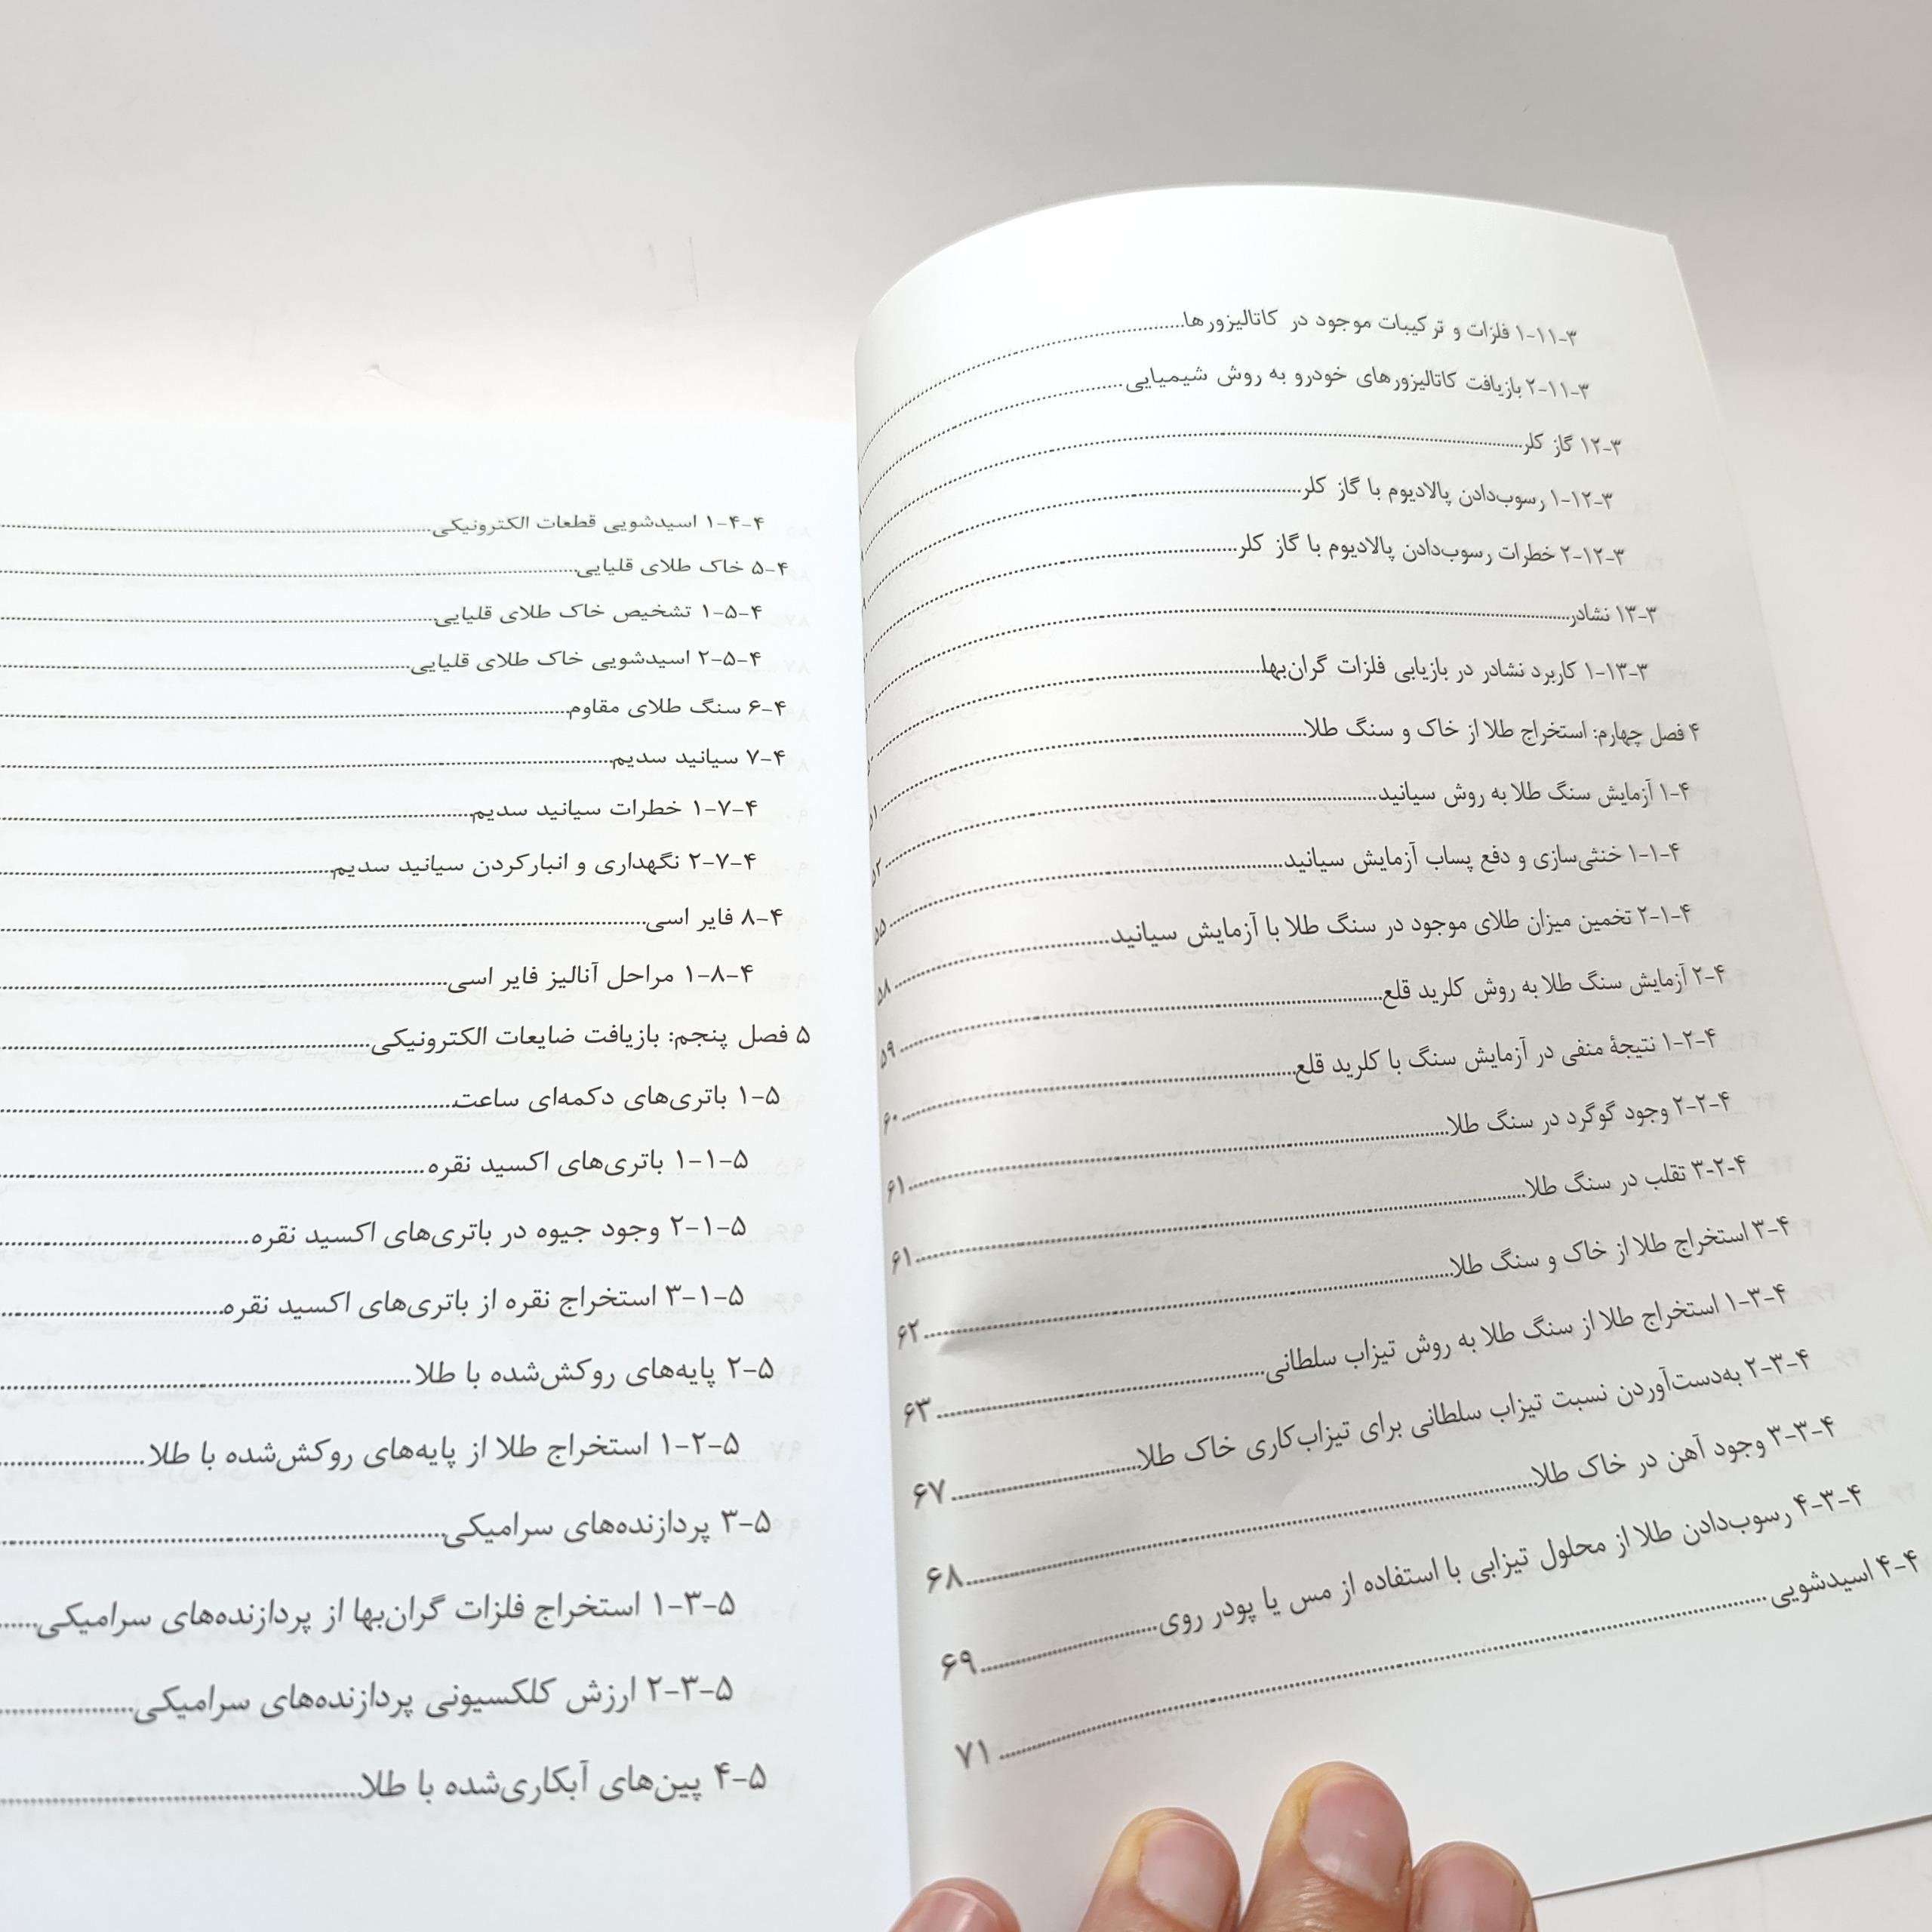 ۱-۱۱-۳ فلزات و ترکیبات موجود در کاتالیزورها
۲-۱۱-۳ بازیافت کاتالیزورهای خودرو به روش شیمیایی
۱۲-۳ گاز کلر
۱-۱۲-۳ رسوب‌دادن پالادیوم با گاز کلر
۲-۱۲-۳ خطرات رسوب‌دادن پالادیوم با گاز کلر
۱۳-۳ نشادر
۱-۱۳-۳ کاربرد نشادر در بازیابی فلزات گران‌بها
۴ فصل چهارم: استخراج طلا از خاک و سنگ طلا
۱-۴ آزمایش سنگ طلا به روش سیانید
۱-۱-۴ خنثی‌سازی و دفع پساب آزمایش سیانید
۲-۱-۴ تخمین میزان طلای موجود در سنگ طلا با آزمایش سیانید
۲-۴ آزمایش سنگ طلا به روش کلرید قلع ۵۹
۱-۲-۴ نتیجهٔ منفی در آزمایش سنگ با کلرید قلع ۶۰
۲-۲-۴ وجود گوگرد در سنگ طلا ۶۱
۳-۲-۴ تقلب در سنگ طلا ۶۱
۳-۴ استخراج طلا از خاک و سنگ طلا ۶۲
۱-۳-۴ استخراج طلا از سنگ طلا به روش تیزاب سلطانی ۶۳
۲-۳-۴ به‌دست‌آوردن نسبت تیزاب سلطانی برای تیزاب‌کاری خاک طلا ۶۷
۳-۳-۴ وجود آهن در خاک طلا ۶۸
۴-۳-۴ رسوب‌دادن طلا از محلول تیزابی با استفاده از مس یا پودر روی ۶۹
۴-۴ اسیدشویی ۷۱
۱-۴-۴ اسیدشویی قطعات الکترونیکی
۵-۴ خاک طلای قلیایی
۱-۵-۴ تشخیص خاک طلای قلیایی
۲-۵-۴ اسیدشویی خاک طلای قلیایی
۶-۴ سنگ طلای مقاوم
۷-۴ سیانید سدیم
۱-۷-۴ خطرات سیانید سدیم
۲-۷-۴ نگهداری و انبارکردن سیانید سدیم
۸-۴ فایر اسی
۱-۸-۴ مراحل آنالیز فایر اسی
۵ فصل پنجم: بازیافت ضایعات الکترونیکی
۱-۵ باتری‌های دکمه‌ای ساعت
۱-۱-۵ باتری‌های اکسید نقره
۲-۱-۵ وجود جیوه در باتری‌های اکسید نقره
۳-۱-۵ استخراج نقره از باتری‌های اکسید نقره
۲-۵ پایه‌های روکش‌شده با طلا
۱-۲-۵ استخراج طلا از پایه‌های روکش‌شده با طلا
۳-۵ پردازنده‌های سرامیکی
۱-۳-۵ استخراج فلزات گران‌بها از پردازنده‌های سرامیکی
۲-۳-۵ ارزش کلکسیونی پردازنده‌های سرامیکی
۴-۵ پین‌های آبکاری‌شده با طلا